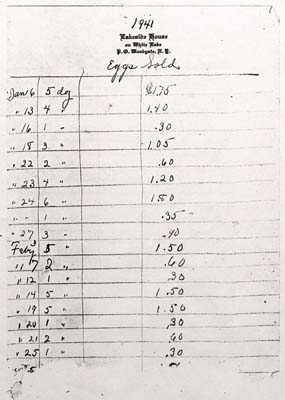 1941
Lakeside House
on White Lake
P. O. Woodgate, N. Y.
Eggs Sold
Jan 6 5 doz $1.75
" 13 4 " 1.40
" 16 1 " .30
" 18 3 " 1.05
" 22 2 " .60
" 23 4 " 1.20
" 24 6 " 1.80
" " 1 " .35
" 27 3 " .90
Feby 3 5 " 1.50
" 7 2 " .60
" 12 1 " .30
" 14 5 " 1.50
" 19 5 " 1.50
" 20 1 " .30
" 21 2 " .60
" 25 1 " .30